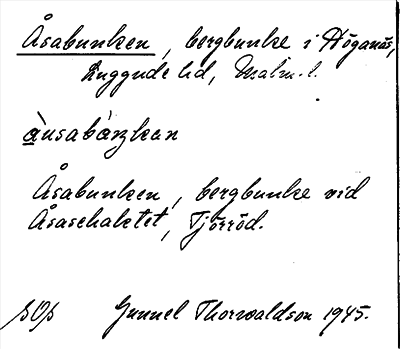 Åsabunken, bergbunke i Höganäs,
Luggude hd, Malm. l.
àusabàŋkan
Åsabunken, bergbunke vid
Åsaschaktet, Tjörröd.
SOß Gunnel Thorwaldson 1945.